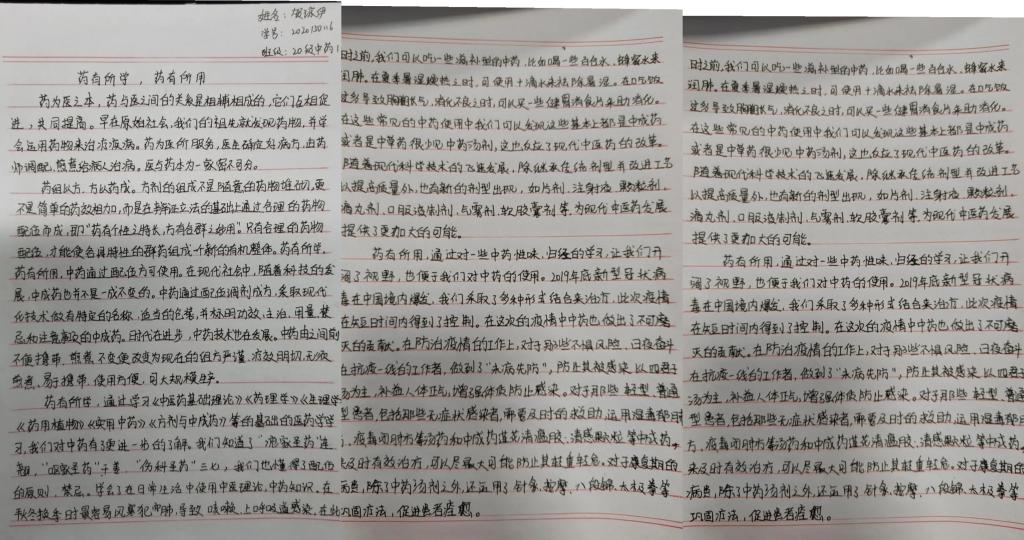 姓名：
学号：2020130116
班级：20级中药1
药有所学，药有所用
药为医之本，药与医之间的关系是相辅相成的，它们互相促
进，共同提高。早在原始社会，我们的祖先就发现药物，并学
会运用药物来治疗疾病。药为医所服务，医生确定好病方，由药
师调配，煎煮给病人治病。医与药本为一家密不可分。
药组以方，方以药成。方剂的组成不是随意的药物堆砌，更
不是简单的药效相加，而是在辨证立法的基础上通过合理的药物
配伍而成，即"药有个性之特长，方有合群之妙用"。只有合理的药物
配伍，才能使各具特性的群药组成一个新的有机整体。药有所学，
药有所用，中药通过配伍方可使用。在现代社会中，随着科技的发
展，中成药也并不是一成不变的。中药通过配伍调剂成方，采取现代
化技术做有特定的名称，适当的包装，并标明功效、主治、用量、禁
忌和注意事项的中成药。时代在进步，中药技术也在发展。中药由之间的
不便携带，煎煮不变便改变为现在的组方严谨，疗效明切，无须
煎煮，易于携带，使用方便，可大规模生产。
药有所学，通过学习《中医药基础理论》《药理学》《生理学》
《药用植物》《实用中药》《方剂与中成药》等的基础的医药学学
习，我们对中药有了更进一步的了解。我们知道了"疮家圣药"连
翘，"血家圣药"，"伤科圣药"三七，我们也懂得了配伍
的原则，禁忌。学会了在日常生活中使用中医理论，中药知识。在
秋冬换季时最容易风寒犯肺，导致咳嗽，上呼吸道感染，在此
时之前，我们可以吃一些滋补型的中药，比如喝一些百合水，蜂蜜水来
润肺。在夏季暑湿燠热之时，可使用十滴水来祛除暑湿。在吃饭
过多导致胸闷气，消化不良之时，可以吃一些健胃消食片来助消化。
在这些常见的中药使用中我们可以发现这些基本上都是中成药
或者是中草药很少见中药汤剂，这也反应了现代中医药的改革。
随着现代科学技术的飞速发展，除继承传统剂型并改进工艺
以提高质量外，也有新的剂型出现，如片剂、注射液、颗粒剂、
滴丸剂、口服液制剂、气雾剂、软胶囊剂等，为现代中医药发展
提供了更加大的可能。
药有所用，通过对一些中药性味、归经的学习，让我们开
阔了视野，也便于我们对中药的使用。2019年底新型冠状病
毒在中国境内爆发，我们采取了多种形式结合来治疗，此次疫情
在短时间内得到了控制。在这次的疫情中中药也做出了不可磨
灭的贡献。在防治疫情的工作上，对于那些不惧风险，日夜奋斗
在抗疫一线的工作者，做到了"未病先防"，防止其被感染，以四君子
汤为主，补益人体正气，增强体质防止感染。对于那些轻型、普通
型患者，包括那些无症状感染者，需要及时的救助，运用湿毒郁肺
方，疫毒闭肺方等汤药和中成药莲花清瘟胶、清感颗粒等中成药，
来及时有效治疗，可以尽最大可能防止其转重转危。对于康复期的
病患，除了中药汤剂之外，还运用了针灸、按摩、八段锦、太极拳等
巩固疗法，促进患者痊愈。
时之前，我们可以吃一些滋补型的中药，比如喝一些百合水，蜂蜜水来
润肺。在夏季暑湿燠热之时，可使用十滴水来祛除暑湿。在吃饭
过多导致胸闷气，消化不良之时，可以吃一些健胃消食片来助消化。
在这些常见的中药使用中我们可以发现这些基本上都是中成药
或者是中草药很少见中药汤剂，这也反应了现代中医药的改革。
随着现代科学技术的飞速发展，除继承传统剂型并改进工艺
以提高质量外，也有新的剂型出现，如片剂、注射液、颗粒剂、
滴丸剂、口服液制剂、气雾剂、软胶囊剂等，为现代中医药发展
提供了更加大的可能。
药有所用，通过对一些中药性味、归经的学习，让我们开
阔了视野，也便于我们对中药的使用。2019年底新型冠状病
毒在中国境内爆发，我们采取了多种形式结合来治疗，此次疫情
在短时间内得到了控制。在这次的疫情中中药也做出了不可磨
灭的贡献。在防治疫情的工作上，对于那些不惧风险，日夜奋斗
在抗疫一线的工作者，做到了"未病先防"，防止其被感染，以四君子
汤为主，补益人体正气，增强体质防止感染。对于那些轻型、普通
型患者，包括那些无症状感染者，需要及时的救助，运用湿毒郁肺
方，疫毒闭肺方等汤药和中成药莲花清瘟胶、清感颗粒等中成药，
来及时有效治疗，可以尽最大可能防止其转重转危。对于康复期的
病患，除了中药汤剂之外，还运用了针灸、按摩、八段锦、太极拳等
巩固疗法，促进患者痊愈。